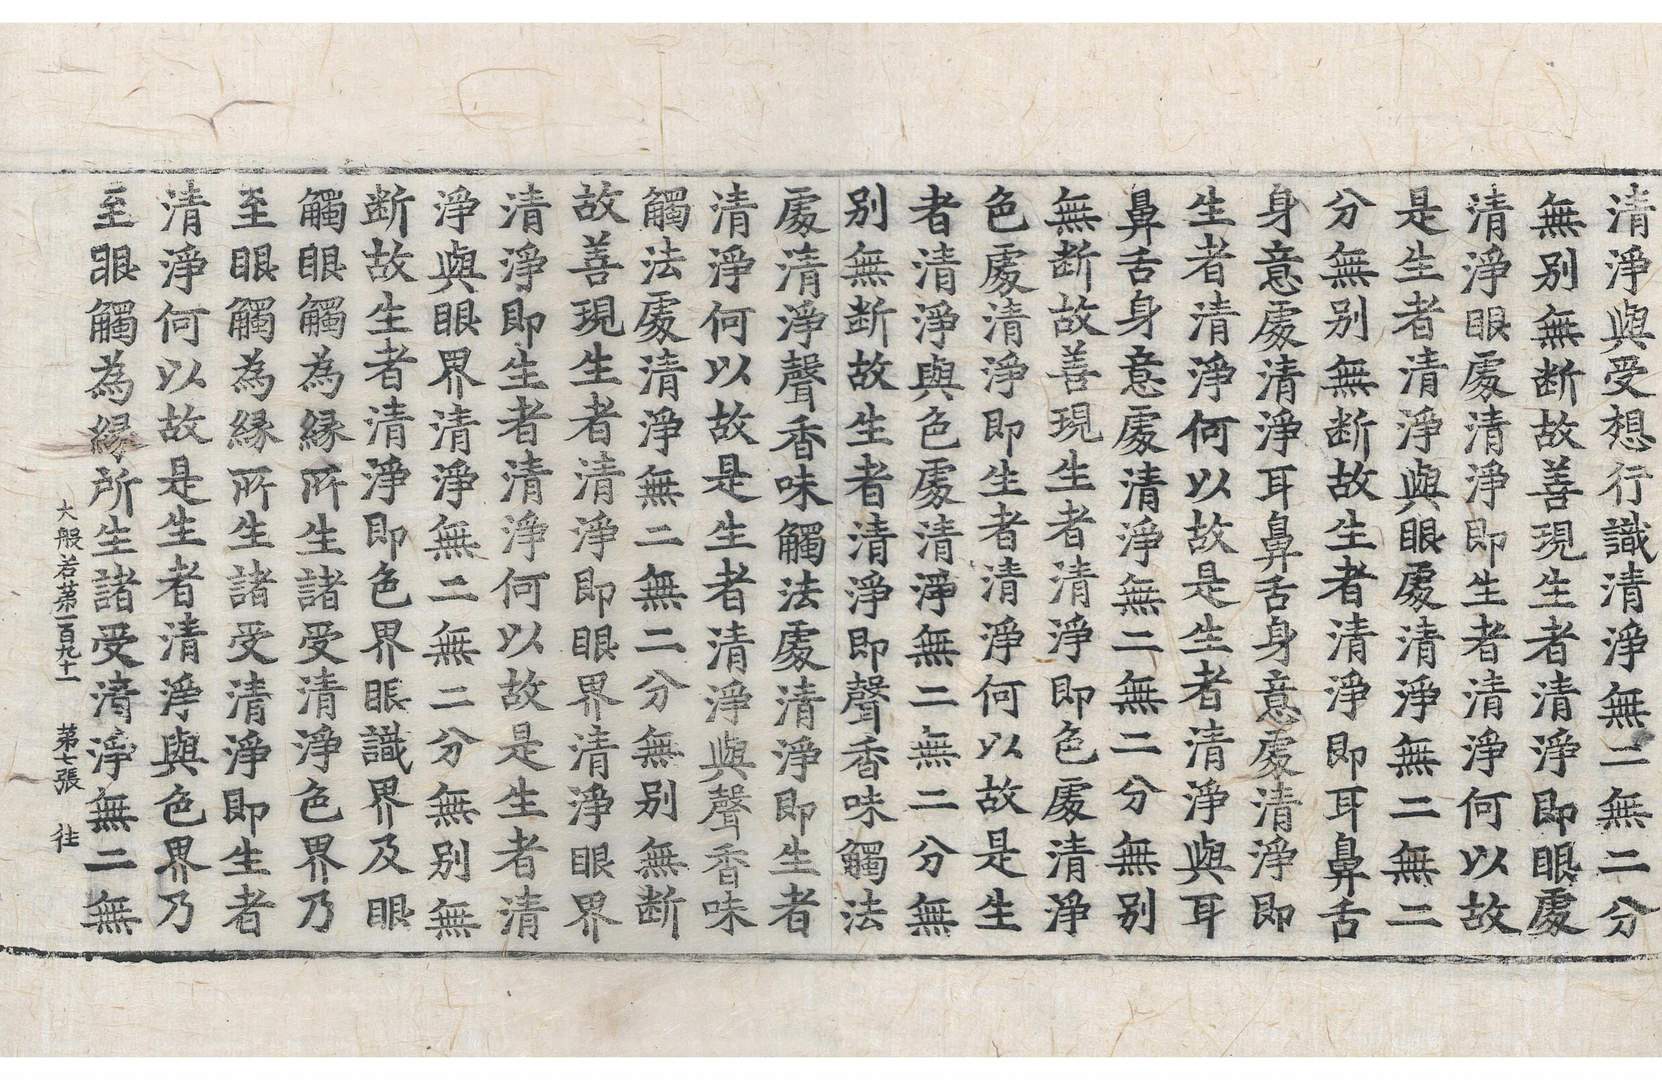 清淨與受想行識清淨無二無二分
無別無断故善現生者清淨即眼處
清淨眼處清淨即生者清淨何以故
是生者清淨與眼處清淨無二無二
分無別無断故生者清淨即耳鼻舌
身意處清淨耳鼻舌身意處清淨即
生者清淨何以故是生者清淨與耳
鼻舌身意處清淨無二無二分無別
無断故善現生者清淨即色處清淨
色處清淨即生者清淨何以故是生
者清淨與色處清淨無二無二分無
別無断故生者清淨即聲香味觸法
處清淨聲香味觸法處清淨即生者
清淨何以故是生者清淨與聲香味
觸法處清淨無二無二分無別無断
故善現生者清淨即眼界清淨眼界
清淨即生者清淨何以故是生者清
淨與眼界清淨無二無二分無別無
断故生者清淨即色界眼識界及眼
觸眼觸為縁所生諸受清淨色界乃
至眼觸為縁所生諸受清淨即生者
清淨何以故是生者清淨與色界乃
至眼觸為縁所生諸受清淨無二無
大般若第一百九十一 第七張 往